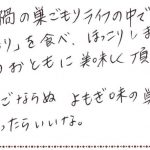 禍の巣ごもりライフの中で
り」を食べ、ほっこりしま
のおともに美味しく頂
ごならぬ よもぎ味の巣
ったらいいな。